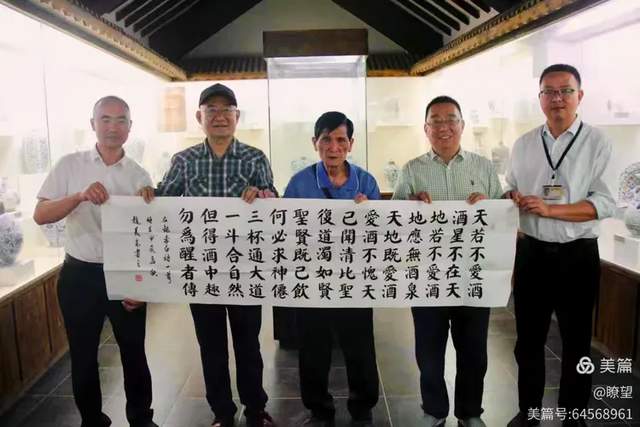 天若不愛酒
酒星不在天
地若不愛酒
地應無酒泉
天地既愛酒
愛酒不愧天
已開清比聖
復道濁如賢
聖賢既已飲
何必求神僊
三杯通大道
一斗合自然
但得酒中趣
勿爲醒者傳
美篇
@瞭望
美篇号:64568961